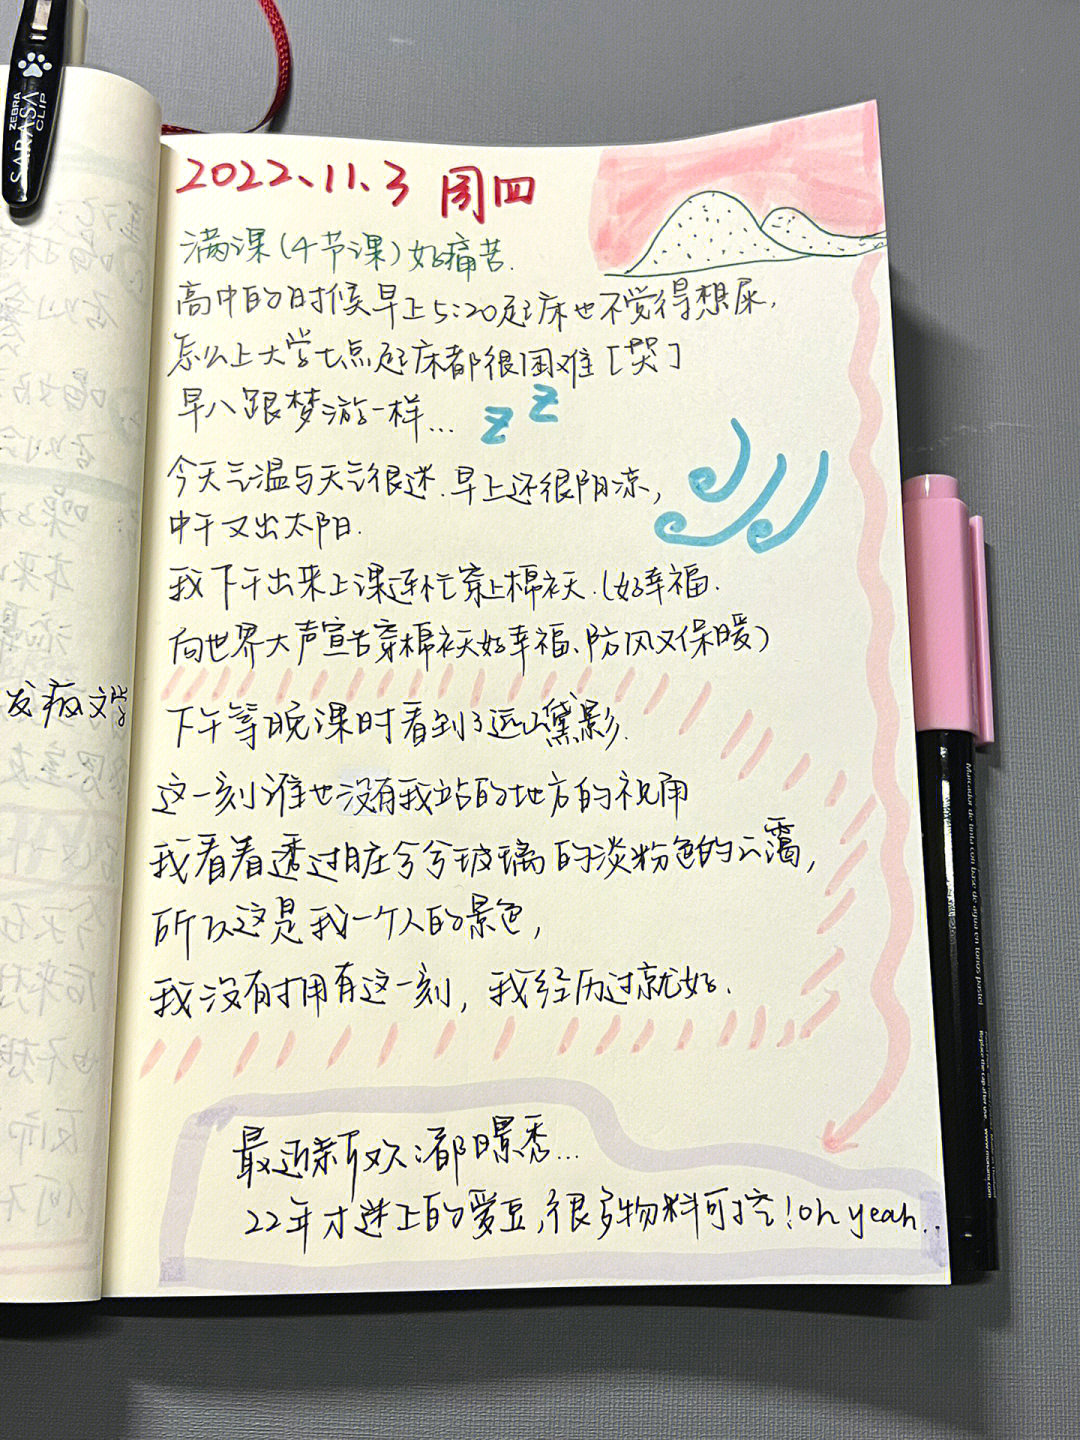 ZEBRA
SARASA
CLIP
2022、11、3 周四
满课(4节课)好痛苦.
高中的时候早上5:20起床也不觉得想尿,
怎么上大学七点起床都很困难[哭]
早八跟梦游一样...
z z
今天气温与天气很迷.早上还很阴凉,
中午又出太阳.
我下午出来上课连忙穿上棉袄.(好幸福.
向世界大声宣告穿棉袄好幸福、防风又保暖)
发疯文学
下午等晚课时看到了远山黛影.
这一刻谁也没有我站的地方的视角
我看着透过脏兮兮玻璃的淡粉色的云霭,
所以这是我一个人的景色,
我没有拥有这一刻,我经历过就好.
最近新欢:都暻秀...
22年才迷上的爱豆,很多物料可挖!oh yeah..
Marcador de tinta con base de agua en tonos pastel
Replace the cap after use.